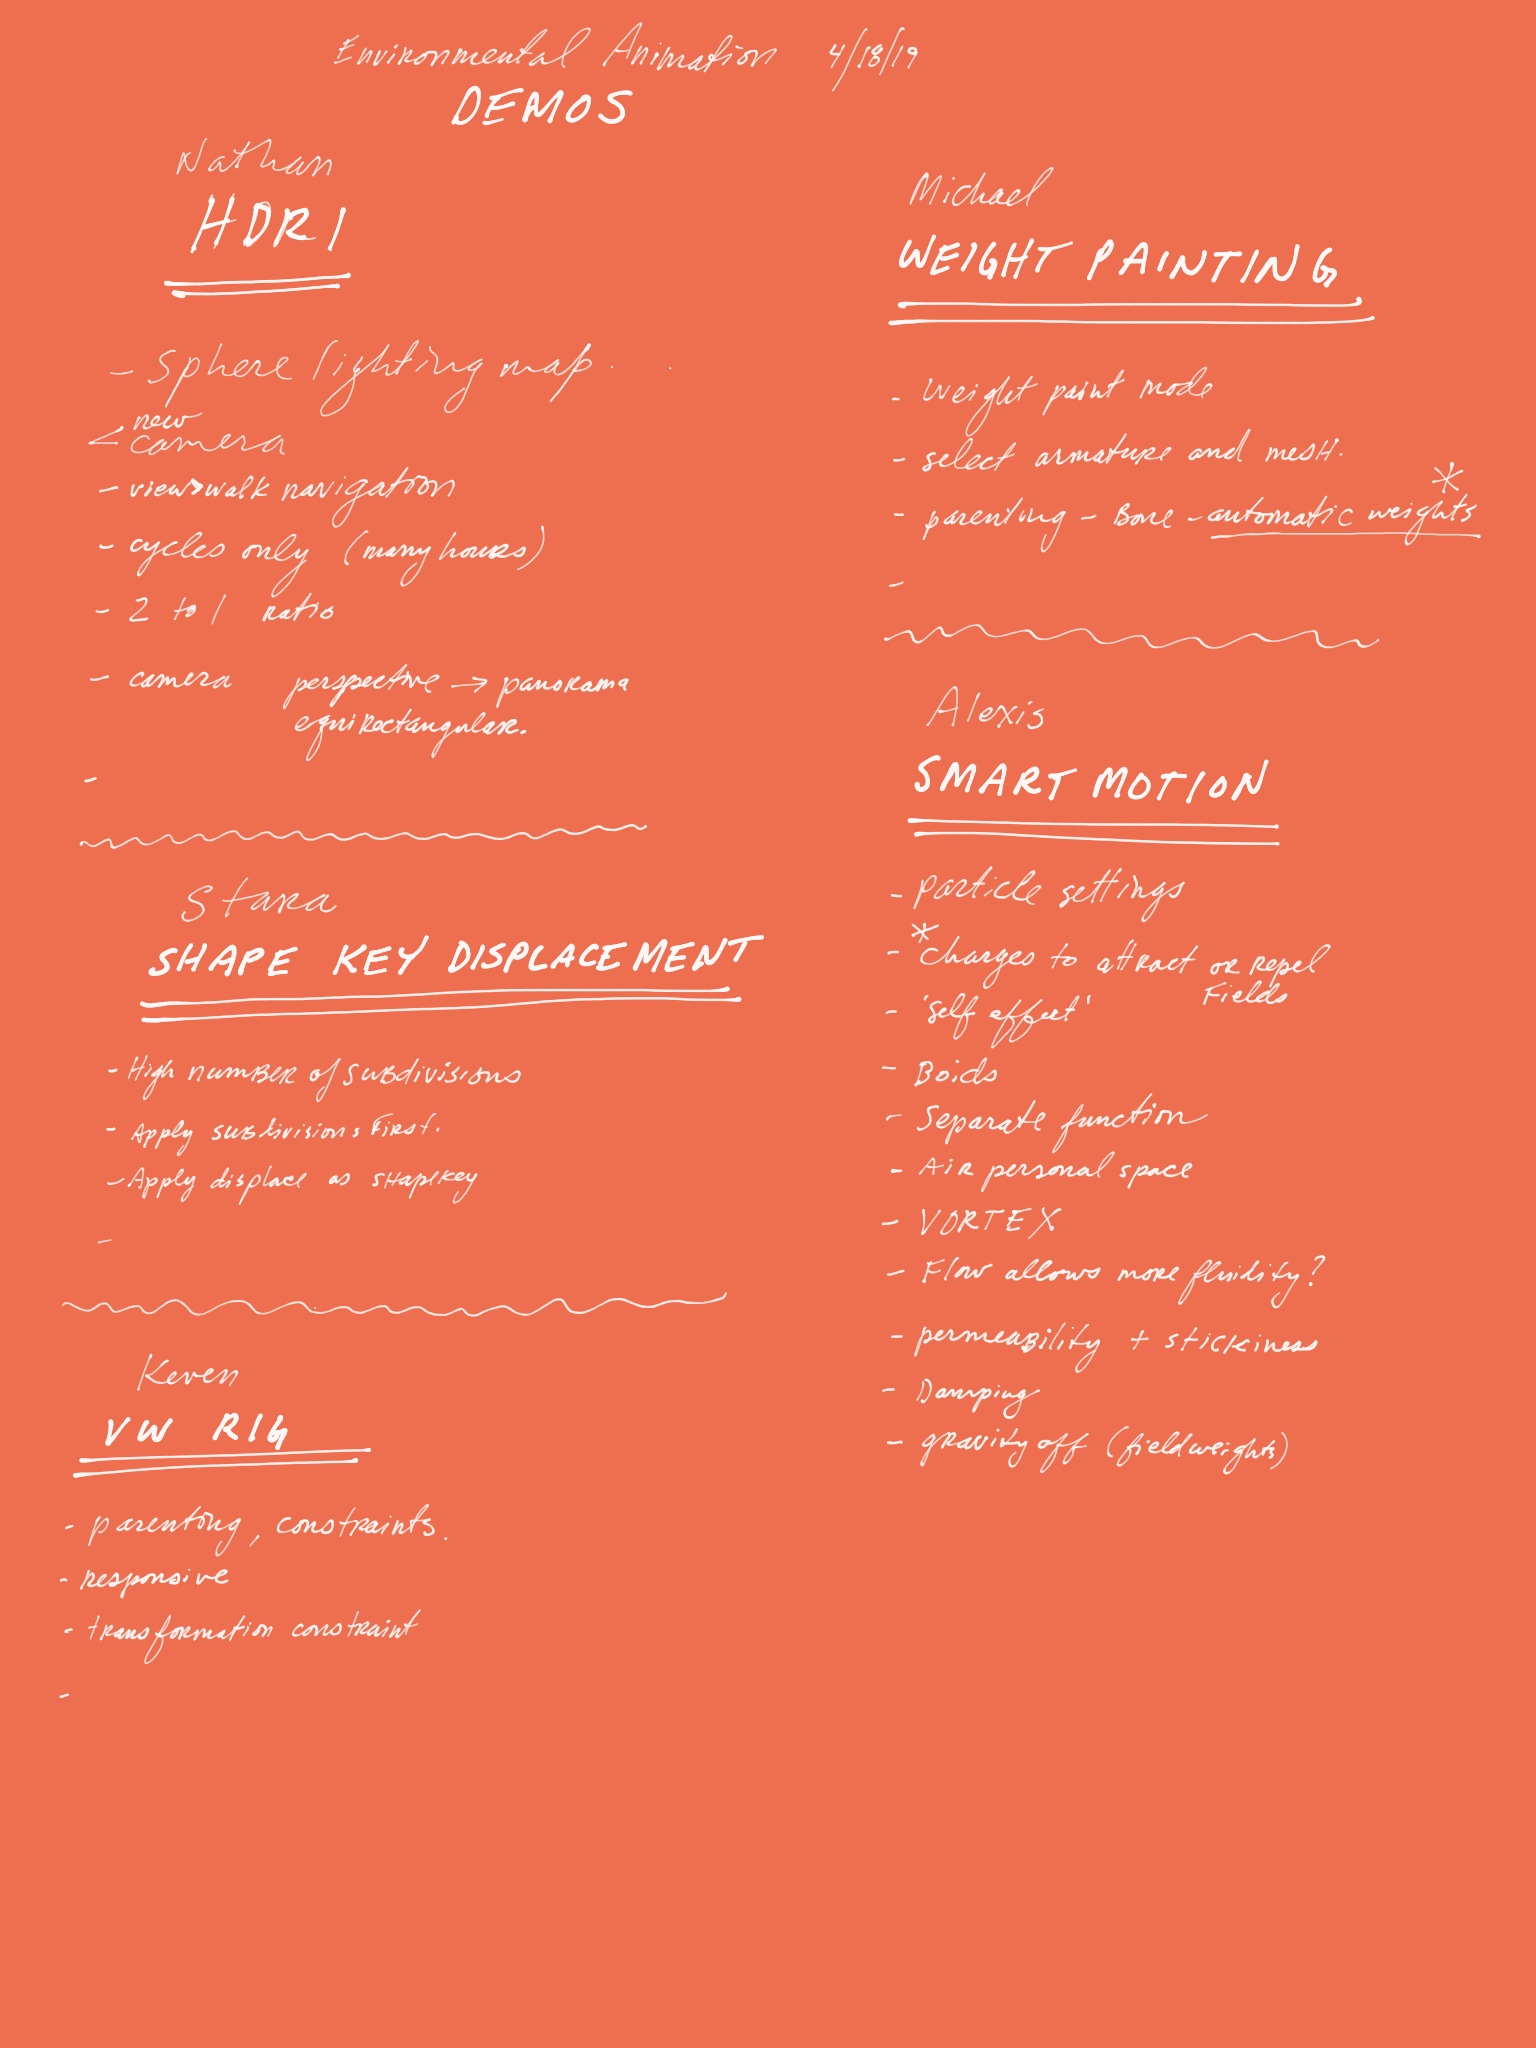 Environmental Animation 4/18/19
DEMOS
Nathan
HDRI
- Sphere lighting map
- new camera
- view>walk navigation
- cycles only (many hours)
- 2 to 1 ratio
- camera perspective → panorama
equirectangular.
-
Stara
SHAPE KEY DISPLACEMENT
- High number of subdivisions
- Apply subdivisions First.
- Apply displace as shapekey
-
Keven
VW RIG
- parenting, constraints.
- responsive
- transformation constraint
-
Michael
WEIGHT PAINTING
- Weight paint mode
- select armature and mesh.
- parenting - Bone - automatic weights *
-
Alexis
SMART MOTION
- particle settings
- * charges to attract or repel
Fields
- 'Self effect'
- Boids
- Separate function
- Air personal space
- VORTEX
- Flow allows more fluidity?
- permeability + stickiness
- Damping
- gravity off (fieldweights)